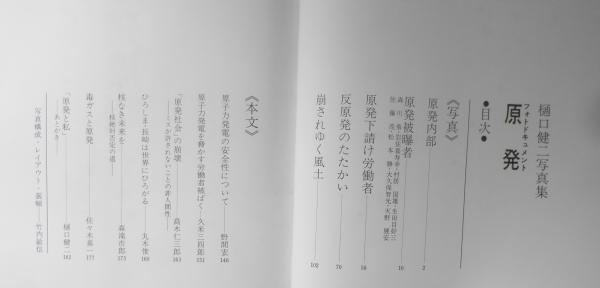 樋口健二写真集
フォトドキュメント
原発
●目次●
《写真》
原発内部 2
原発被曝者 10
原発下請け労働者 50
反原発のたたかい 70
崩されゆく風土 102
《本文》
原子力発電の安全性について 野間宏 146
原子力発電を脅かす労働者被ばく 久米三四郎 151
「原発社会」の崩壊
―ミスが許されないことの非人間性― 高木仁三郎 163
ひろしま・長崎は世界にひろがる 丸木俊 169
核なき未来を
―核絶対否定の道― 森滝市郎 173
毒ガスと原発 佐々木嘉一 177
「原発と私」
―あとがき― 樋口健二 182
写真構成・レイアウト・装幀 竹内敏信